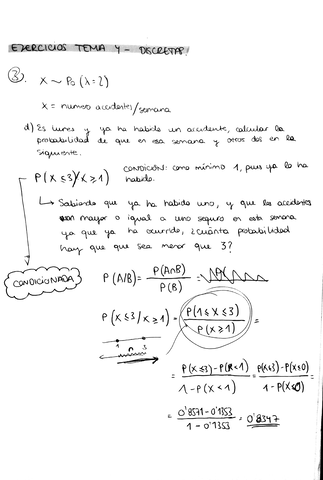 EJERCICIOS TEMA 4 - DISCRETAS!
③. X ~ Po (λ=2)
X = numero accidentes/semana
d) Es lunes y ya ha habido un accidente, calcular la
probabilidad de que en esa semana y otros dos en la
siguiente.
P(X ≤ 3/X ≥ 1) CONDICIÓN: como mínimo 1, pues ya lo ha
habido.
↳ Sabiendo que ya ha habido uno, y que los accidentes
mayor o igual a uno seguro en esta semana
ya que ya ha ocurrido, ¿cuánta probabilidad
hay que que sea menor que 3?
CONDICIONADA
P(A/B) = P(A∩B) / P(B) =
P(X ≤ 3 / X ≥ 1) = P(1 ≤ X ≤ 3) / P(X ≥ 1) =
1 3
= P(X ≤ 3) - P(X < 1) / 1 - P(X < 1) = P(X ≤ 3) - P(X ≤ 0) / 1 - P(X ≤ 0)
= 0'8571 - 0'1353 / 1 - 0'1353 = 0'8347